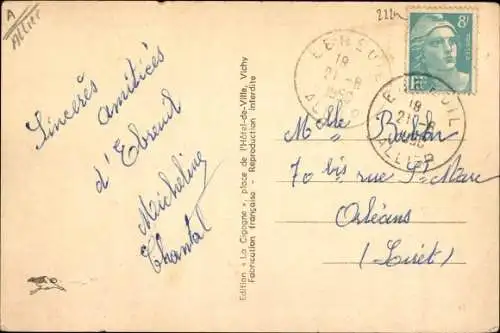 A
Allier
222u
Sincères amitiés
d'Ebreuil
Micheline
Chantal
Edition « La Cigogne », place de l'Hôtel-de-Ville, Vichy
Fabrication française - Reproduction interdite
EBREUIL
18
21-8
1950
ALLIER
8F
EBREUIL
18
21-8
1950
ALLIER
Melle
70 bis rue St Marc
Orléans
(Loiret)